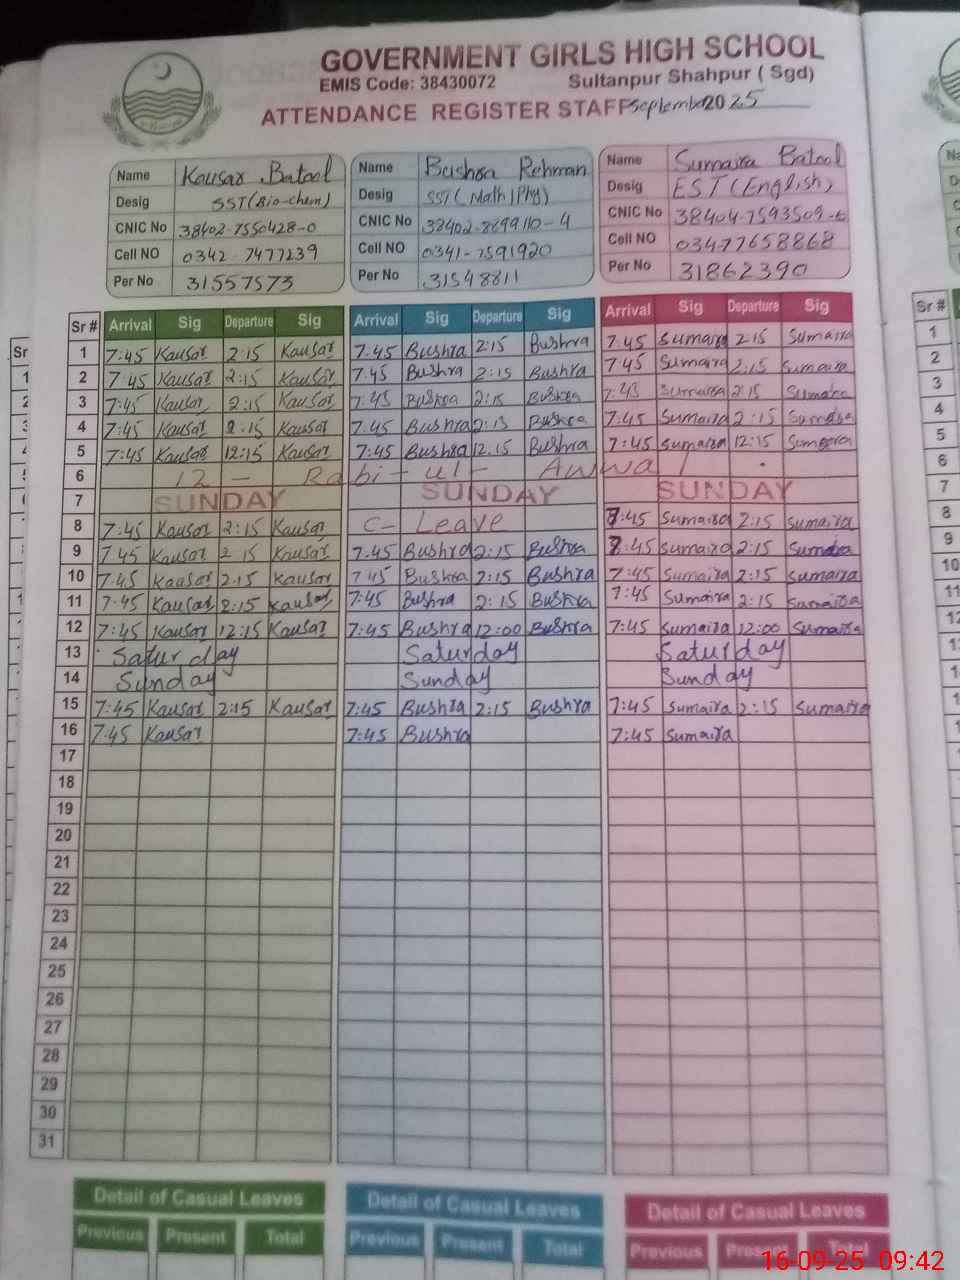 GOVERNMENT GIRLS HIGH SCHOOL
EMIS Code: 38430072 Sultanpur Shahpur ( Sgd)
ATTENDANCE REGISTER STAFF September 2025
Name Kausar Batool Name Bushra Rehman Name Sumaira Batool
Desig SST(Bio-chem) Desig SST(Math|Phy) Desig EST(English)
CNIC No 38402-7550428-0 CNIC No 38402-8699110-4 CNIC No 38404-7593509-6
Cell NO 0342-7477239 Cell NO 0341-7591920 Cell NO 03477658868
Per No 31557573 Per No 31548811 Per No 31862390
Sr # Arrival Sig Departure Sig Arrival Sig Departure Sig Arrival Sig Departure Sig Sr #
1 7:45 Kausar 2:15 Kausar 7:45 Bushra 2:15 Bushra 7:45 Sumaira 2:15 Sumaira 1
2 7:45 Kausar 2:15 Kausar 7:45 Bushra 2:15 Bushra 7:45 Sumaira 2:15 Sumaira 2
3 7:45 Kausar 2:15 Kausar 7:45 Bushra 2:15 Bushra 7:45 Sumaira 2:15 Sumaira 3
4 7:45 Kausar 2:15 Kausar 7:45 Bushra 2:15 Bushra 7:45 Sumaira 2:15 Sumaira 4
5 7:45 Kausar 12:15 Kausar 7:45 Bushra 12:15 Bushra 7:45 Sumaira 12:15 Sumaira 5
6 12 - Rabi-ul-Awwal 6
7 SUNDAY SUNDAY SUNDAY 7
8 7:45 Kausar 2:15 Kausar C-Leave 7:45 Sumaira 2:15 Sumaira 8
9 7:45 Kausar 2:15 Kausar 7:45 Bushra 2:15 Bushra 7:45 Sumaira 2:15 Sumaira 9
10 7:45 Kausar 2:15 Kausar 7:45 Bushra 2:15 Bushra 7:45 Sumaira 2:15 Sumaira 10
11 7:45 Kausar 2:15 Kausar 7:45 Bushra 2:15 Bushra 7:45 Sumaira 2:15 Sumaira 11
12 7:45 Kausar 12:15 Kausar 7:45 Bushra 12:00 Bushra 7:45 Sumaira 12:00 Sumaira
13 Saturday Saturday Saturday
14 Sunday Sunday Sunday
15 7:45 Kausar 2:15 Kausar 7:45 Bushra 2:15 Bushra 7:45 Sumaira 2:15 Sumaira
16 7:45 Kausar 7:45 Bushra 7:45 Sumaira
17
18
19
20
21
22
23
24
25
26
27
28
29
30
31
Detail of Casual Leaves Detail of Casual Leaves Detail of Casual Leaves
Previous Present Total Previous Present Total Previous Present Total
16-09-25 09:42